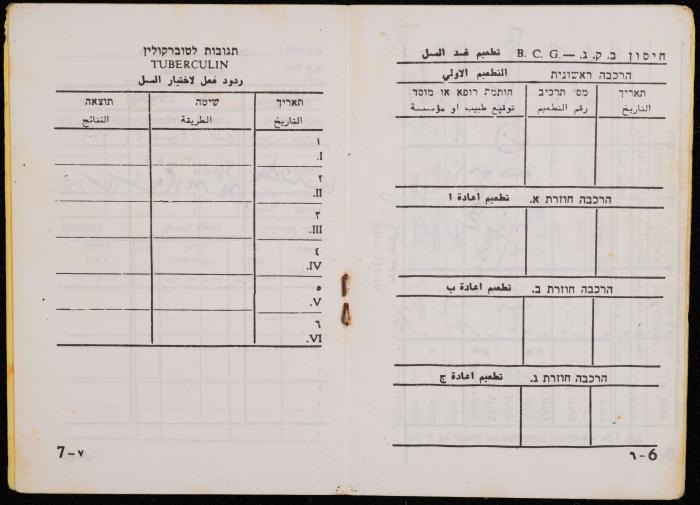 חיסון ב. ק. ג. — .B. C. G تطعيم ضد السل
הרכבה ראשונית التطعيم الاولي
תאריך מס׳ תרכיב חותמת רופא או מוסד
التاريخ رقم التطعيم توقيع طبيب او مؤسسة
הרכבה חוזרת א. تطعيم اعادة ا
הרכבה חוזרת ב. تطعيم اعادة ب
הרכבה חוזרת ג. تطعيم اعادة ج
٦-6
תגובות לטוברקולין
TUBERCULIN
ردود فعل لاختبار السل
תאריך שיטה תוצאה
التاريخ الطريقة النتائج
١
.I
٢
.II
٣
.III
٤
.IV
٥
.V
٦
.VI
7-٧